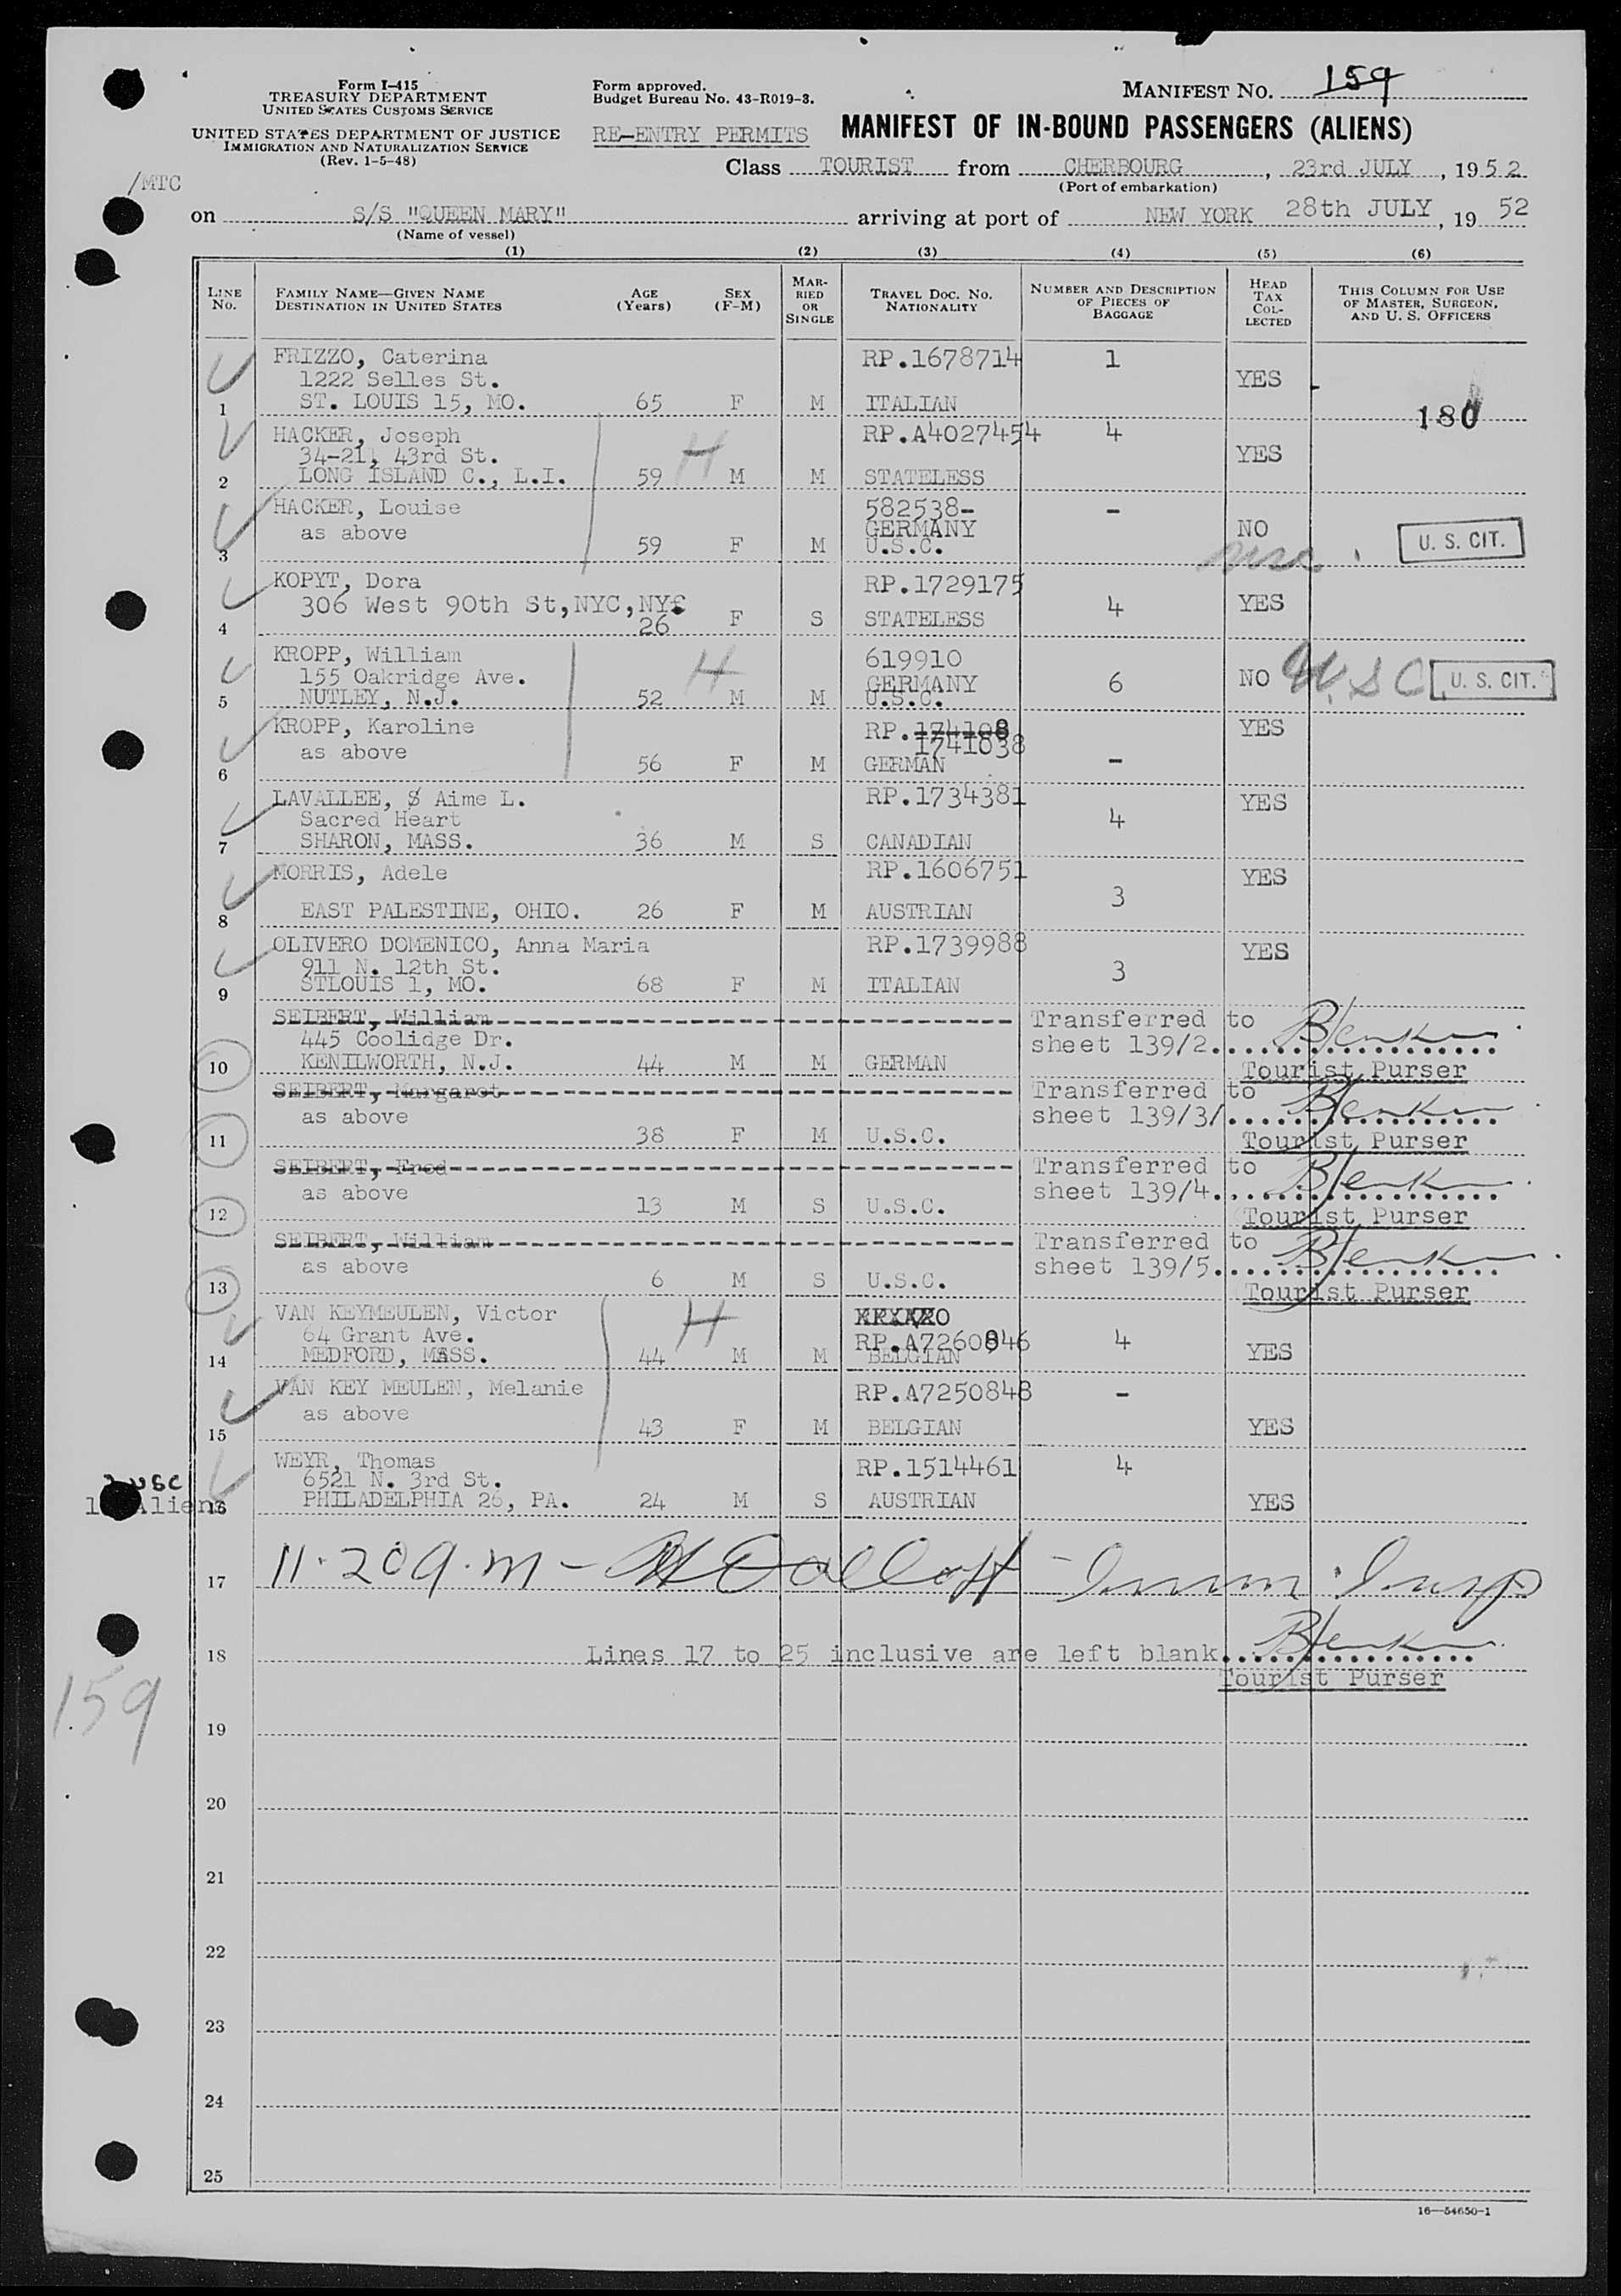 Form I-415
TREASURY DEPARTMENT
UNITED STATES CUSTOMS SERVICE
UNITED STATES DEPARTMENT OF JUSTICE
IMMIGRATION AND NATURALIZATION SERVICE
(Rev. 1-5-48)
/MTC
Form approved.
Budget Bureau No. 43-R019-3.
RE-ENTRY PERMITS
MANIFEST NO. 159
MANIFEST OF IN-BOUND PASSENGERS (ALIENS)
Class TOURIST from CHERBOURG, 23rd JULY, 1952
(Port of embarkation)
on S/S "QUEEN MARY" arriving at port of NEW YORK 28th JULY, 19 52
(Name of vessel)
(1) (2) (3) (4) (5) (6)
LINE No. FAMILY NAME—GIVEN NAME DESTINATION IN UNITED STATES AGE (Years) SEX (F-M) MARRIED OR SINGLE TRAVEL DOC. NO. NATIONALITY NUMBER AND DESCRIPTION OF PIECES OF BAGGAGE HEAD TAX COLLECTED THIS COLUMN FOR USE OF MASTER, SURGEON, AND U. S. OFFICERS
FRIZZO, Caterina RP.1678714 1
1222 Selles St. YES
1 ST. LOUIS 15, MO. 65 F M ITALIAN 180
HACKER, Joseph RP.A4027454 4
34-21, 43rd St. H YES
2 LONG ISLAND C., L.I. 59 M M STATELESS
HACKER, Louise 582538- -
as above GERMANY NO U. S. CIT.
3 59 F M U.S.C.
KOPYT, Dora RP.1729175
306 West 90th St,NYC,NY 4 YES
4 26 F S STATELESS
KROPP, William 619910
155 Oakridge Ave. H GERMANY 6 NO U.S.C. U. S. CIT.
5 NUTLEY, N.J. 52 M M U.S.C.
KROPP, Karoline RP.174108 YES
as above 1741038
6 56 F M GERMAN -
LAVALLEE, S Aime L. RP.1734381 YES
Sacred Heart 4
7 SHARON, MASS. 36 M S CANADIAN
MORRIS, Adele RP.1606751 YES
3
8 EAST PALESTINE, OHIO. 26 F M AUSTRIAN
OLIVERO DOMENICO, Anna Maria RP.1739988 YES
911 N. 12th St. 3
9 STLOUIS 1, MO. 68 F M ITALIAN
SEIBERT, William Transferred to
445 Coolidge Dr. sheet 139/2.
10 KENILWORTH, N.J. 44 M M GERMAN Tourist Purser
SEIBERT, Margaret Transferred to
as above sheet 139/3/
11 38 F M U.S.C. Tourist Purser
SEIBERT, Fred Transferred to
as above sheet 139/4.
12 13 M S U.S.C. Tourist Purser
SEIBERT, William Transferred to
as above sheet 139/5.
13 6 M S U.S.C. Tourist Purser
VAN KEYMEULEN, Victor H
64 Grant Ave. RP.A7260846 4
14 MEDFORD, MASS. 44 M M BELGIAN YES
VAN KEY MEULEN, Melanie RP.A7250848 -
as above
15 43 F M BELGIAN YES
WEYR, Thomas RP.1514461 4
6521 N. 3rd St.
16 PHILADELPHIA 26, PA. 24 M S AUSTRIAN YES
USC
Aliens
17 11.20 a.m - Imm. Insp
18 Lines 17 to 25 inclusive are left blank
Tourist Purser
159
19
20
21
22
23
24
25
16—54650-1